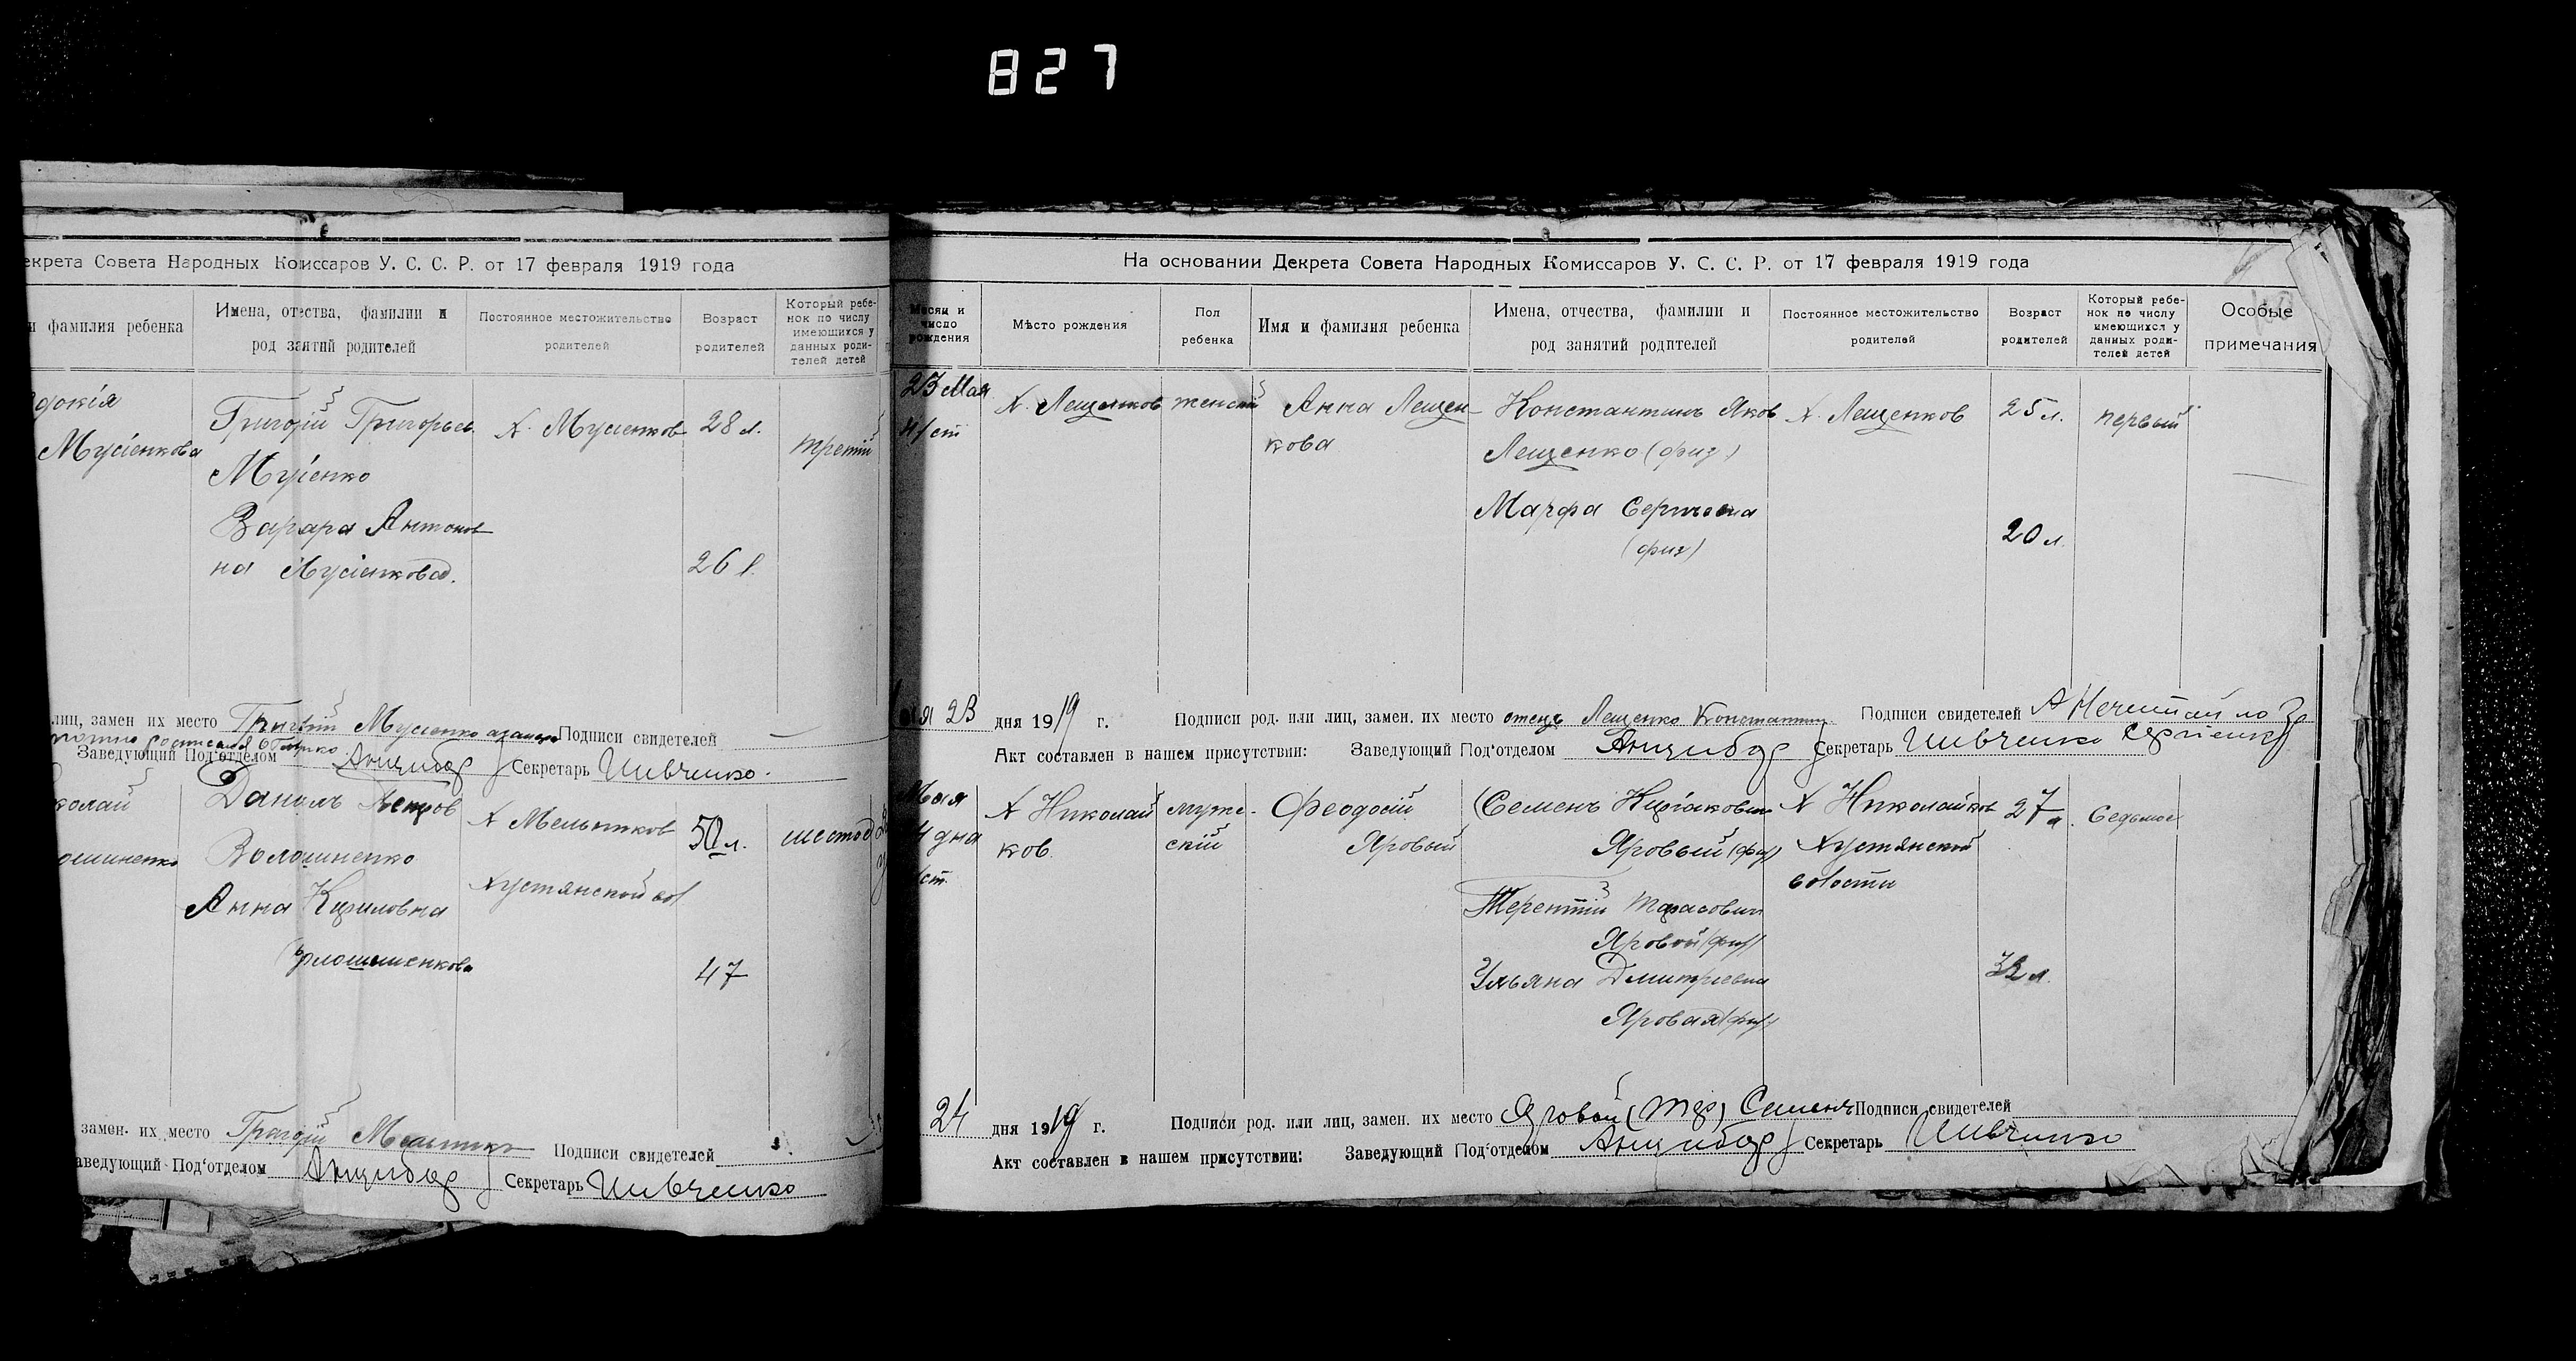 827
екрета Совета Народных Комиссаров У. С. С. Р. от 17 февраля 1919 года
и фамилия ребенка
Имена, отчества, фамилии и
род занятий родителей
Постоянное местожительство
родителей
Возраст
родителей
Который ребе-
нок по числу
имеющихся у
данных роди-
телей детей
докія
Мусіенкова
Григорій Григорьев
Мусіенко
Варара Антонов
на Мусіенкова.
Х. Мусіенков
28 л.
26 л.
третій
лиц, замен их место Григорій Мусіенко
Подписи свидетелей
Заведующий Под‘отделом
Секретарь Шевченко.
колай
ошиненко
Данилъ Петров
Волошиненко
Анна Кириловна
Х Мельников
Хустянской вол
50 л.
47
шестой
замен. их место Григорій Мельникъ
Подписи свидетелей
аведующий Под‘отделом
Секретарь Шевченко
На основании Декрета Совета Народных Комиссаров У. С. С. Р. от 17 февраля 1919 года
Месяц и
число
рождения
Мѣсто рождения
Пол
ребенка
Имя и фамилия ребенка
Имена, отчества, фамилии и
род занятий родителей
Постоянное местожительство
родителей
Возраст
родителей
Который ребе-
нок по числу
имеющихся у
данных роди-
телей детей
Особые
примечания
23 Мая
ст
Х. Лещенков
женскій
Анна Лещен-
кова
Константинъ Яков
Лещенко (физ)
Марфа Сергѣевна
(физ)
Х. Лещенков
25 л.
20 л.
первый
23 дня 1919 г.
Подписи род. или лиц, замен. их место отецъ Лещенко Константин
Подписи свидетелей
Акт составлен в нашем присутствии:
Заведующий Под‘отделом
Секретарь Шевченко
Мая
дня
ст.
Х Николай
ков.
муже-
скій
Феодосій
Яровый
Семенъ Киріакович
Яровый (физ)
Терентій Тарасович
Яровой (физ)
Ульяна Дмитриевна
Яровая (физ)
Х Николайков
Хустянской
волости
27 л.
32 л.
Седьмое
24 дня 1919 г.
Подписи род. или лиц, замен. их место Яровой Семенъ
Подписи свидетелей
Акт составлен в нашем присутствии:
Заведующий Под‘отделом
Секретарь Шевченко